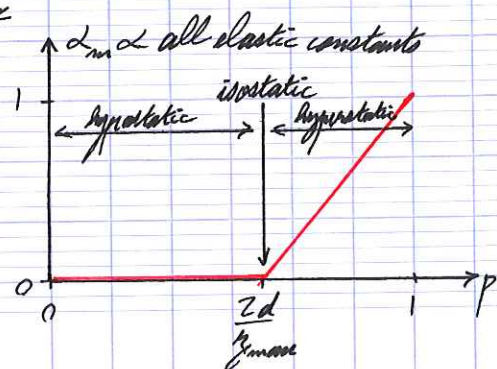 α_m ∝ all elastic constants
1
isostatic
hypostatic
hyperstatic
0
p
0
2d
z_max
1